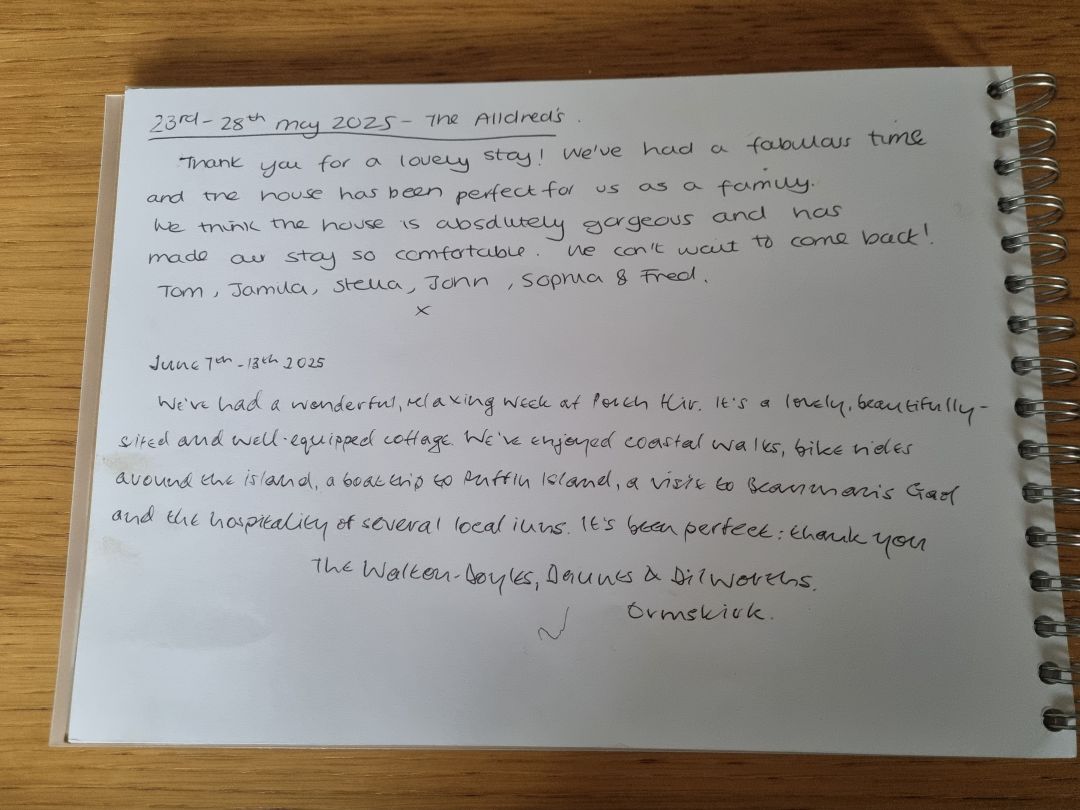 23rd - 28th may 2025 - The Alldred's.
Thank you for a lovely stay! We've had a fabulous time
and the house has been perfect for us as a family.
We think the house is absolutely gorgeous and has
made our stay so comfortable. We can't wait to come back!
Tom, Jamila, Stella, John, Sophia & Fred.
x
June 7th - 13th 2025
We've had a wonderful, relaxing week at Porth Hir. It's a lovely, beautifully-
sited and well-equipped cottage. We've enjoyed coastal walks, bike rides
around the island, a boat trip to Puffin Island, a visit to Beaumaris Gaol
and the hospitality of several local inns. It's been perfect: thank you
The Walton-Doyles, & Dilworths.
Ormskirk.